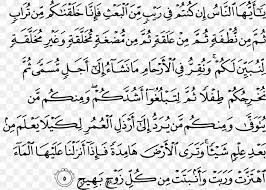 يَٰٓأَيُّهَا ٱلنَّاسُ إِن كُنتُمْ فِى رَيْبٍ مِّنَ ٱلْبَعْثِ فَإِنَّا خَلَقْنَٰكُم مِّن تُرَابٍ
ثُمَّ مِن نُّطْفَةٍ ثُمَّ مِنْ عَلَقَةٍ ثُمَّ مِن مُّضْغَةٍ مُّخَلَّقَةٍ وَغَيْرِ مُخَلَّقَةٍ
لِّنُبَيِّنَ لَكُمْ وَنُقِرُّ فِى ٱلْأَرْحَامِ مَا نَشَآءُ إِلَىٰٓ أَجَلٍ مُّسَمًّى ثُمَّ
نُخْرِجُكُمْ طِفْلًا ثُمَّ لِتَبْلُغُوٓا۟ أَشُدَّكُمْ وَمِنكُم مَّن
يُتَوَفَّىٰ وَمِنكُم مَّن يُرَدُّ إِلَىٰٓ أَرْذَلِ ٱلْعُمُرِ لِكَيْلَا يَعْلَمَ مِنۢ
بَعْدِ عِلْمٍ شَيْـًٔا وَتَرَى ٱلْأَرْضَ هَامِدَةً فَإِذَآ أَنزَلْنَا عَلَيْهَا ٱلْمَآءَ
ٱهْتَزَّتْ وَرَبَتْ وَأَنۢبَتَتْ مِن كُلِّ زَوْجٍۭ بَهِيجٍ ٥